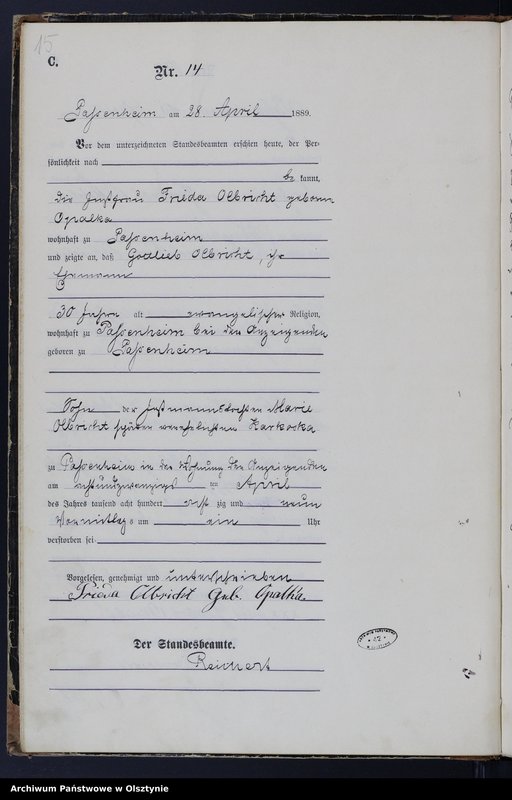 15
C.
Nr. 14
Passenheim am 28. April 1889.
Vor dem unterzeichneten Standesbeamten erschien heute, der Per-
sönlichkeit nach
be kannt,
die Instfrau Frieda Olbricht geborne
Opalka
wohnhaft zu Passenheim
und zeigte an, daß Gottlieb Olbricht, ihr
Ehemann
30 Jahre alt evangelischer Religion,
wohnhaft zu Passenheim bei der Anzeigenden
geboren zu Passenheim
Sohn der Instmannstochter Marie
Olbricht später verehelichten Karkoska
zu Passenheim in der Wohnung der Anzeigenden
am achtundzwanzigsten April
des Jahres tausend acht hundert acht zig und neun
Vormittags um ein Uhr
verstorben sei
Vorgelesen, genehmigt und unterschrieben
Frieda Olbricht Geb. Opalka.
Der Standesbeamte.
Reichert
Archiwum Państwowe w Olsztynie